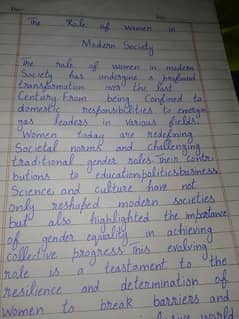 The Role of Women in
Modern Society
The rule of women in modern
Society has undergone a profound
transformation over the last
Century. From being Confined to
domestic responsibilities to emergin
gas leaders in various fields.
Women today are redefining
Societal norms and challenging
traditional gender roles. Their contri
butions to education,politics,business
Science, and culture have not
only reshaped modern societies
but also highlighted the importance
of gender equality in achieving
collective progress. This evolving
role is a teastament to the
resilience and determination of
women to break barriers and
world